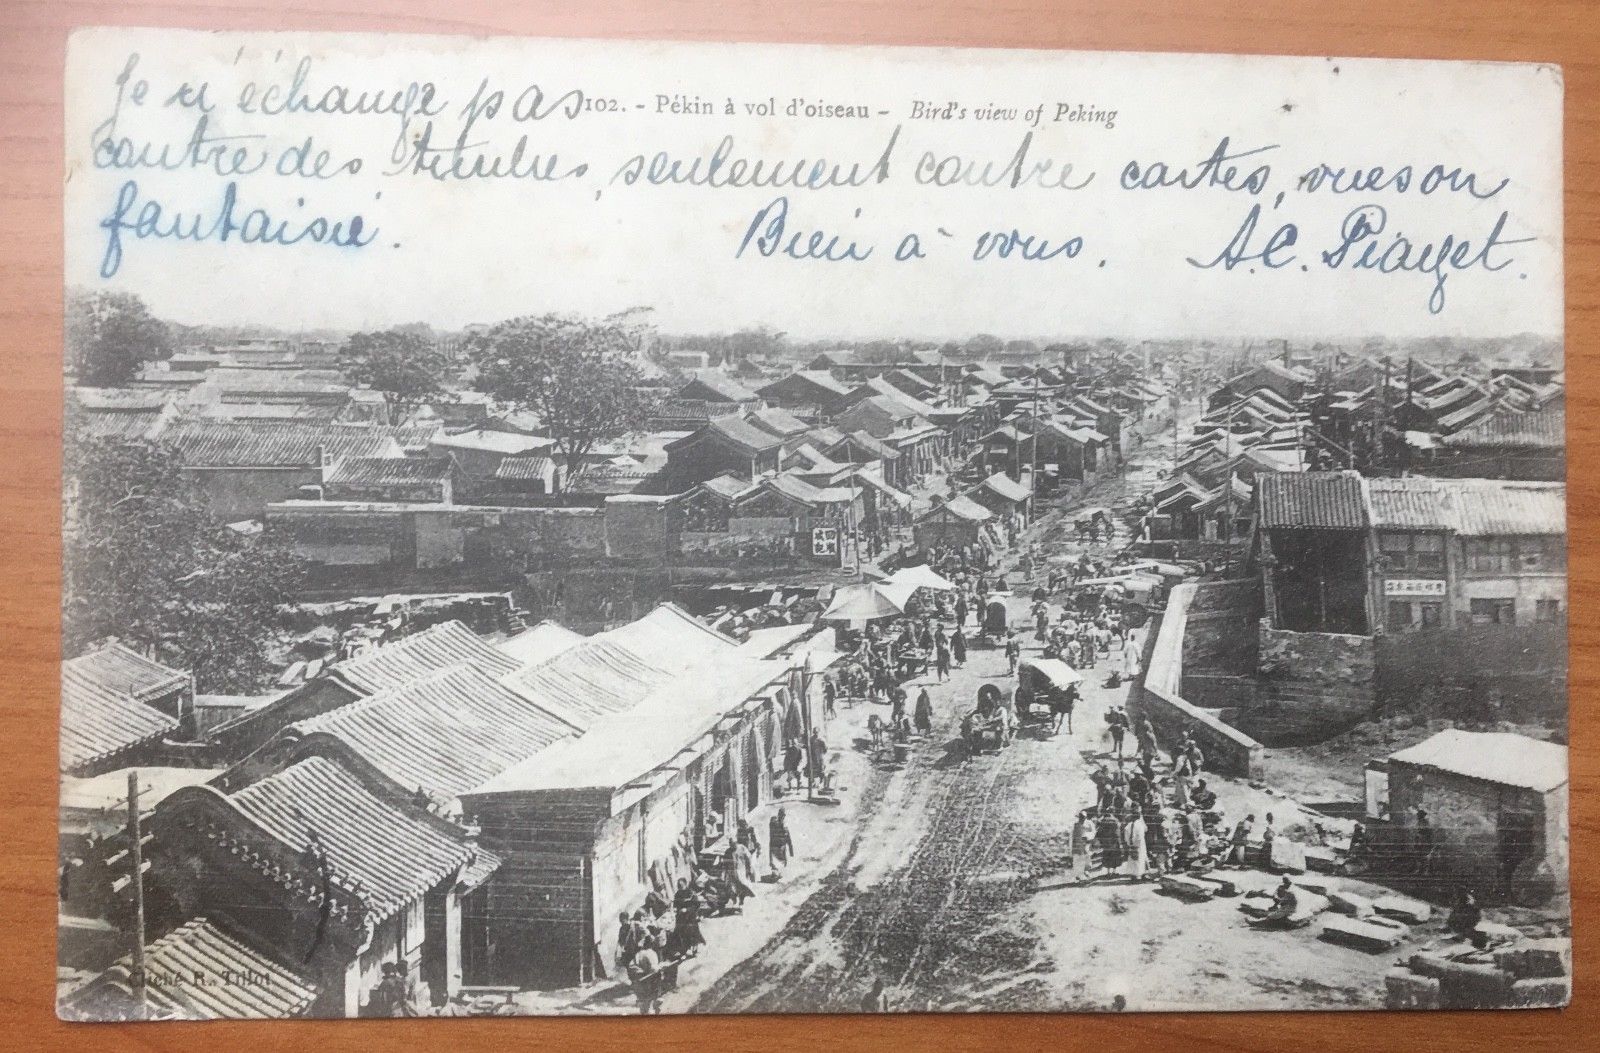 Je n'échange pas 102. - Pékin à vol d'oiseau - Bird's view of Peking
contre des timbres, seulement contre cartes, vues ou
fantaisie.
Bien à vous. A.C. Piaget.
Cliché R. Tillot